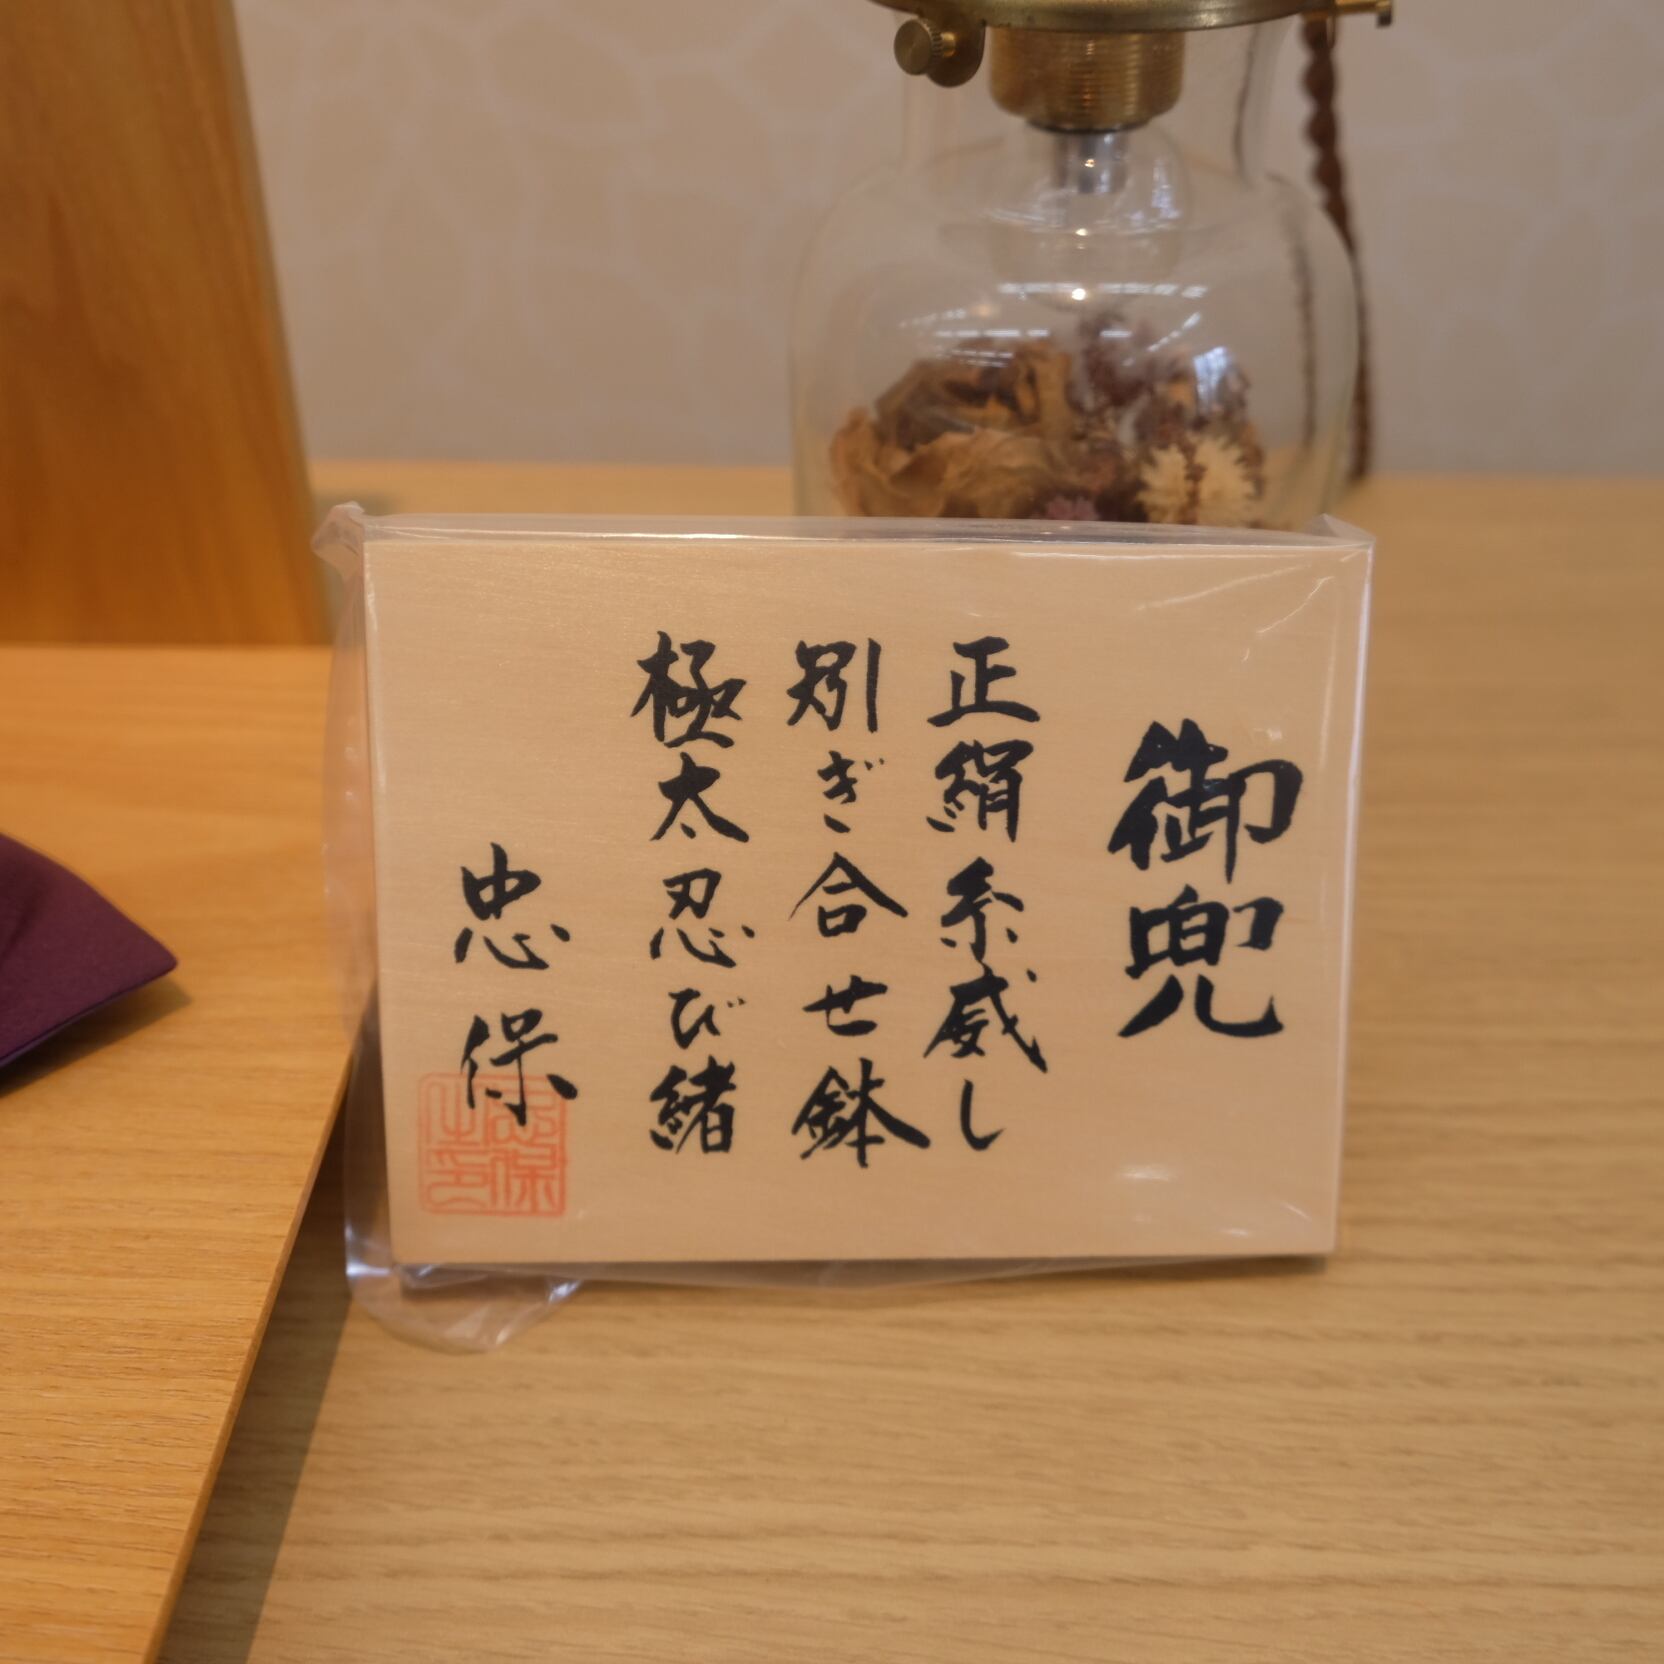 御兜
正絹糸威し
矧ぎ合せ鉢
極太忍び緒
忠保
忠保之印